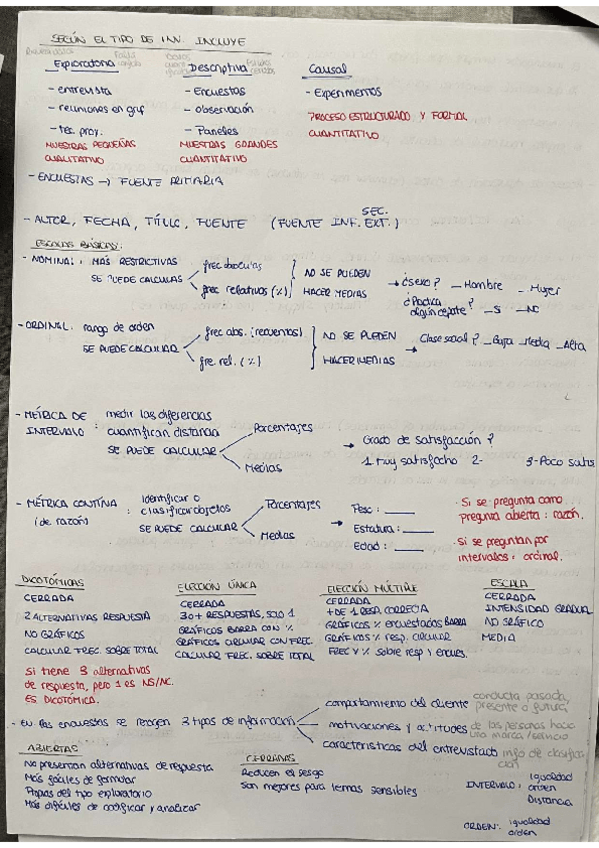 SEGÚN EL TIPO DE INV. INCLUYE
Exploratoria Descriptiva Causal
- entrevista - Encuestas - Experimentos
- reuniones en grup - observación PROCESO ESTRUCTURADO Y FORMAL
- Tec. proy. - Paneles CUANTITATIVO
MUESTRAS PEQUEÑAS MUESTRAS GRANDES
CUALITATIVO CUANTITATIVO
- ENCUESTAS → FUENTE PRIMARIA
- AUTOR, FECHA, TÍTULO, FUENTE (FUENTE INF. EXT.) SEC.
ESCALAS BÁSICAS:
- NOMINAL: MÁS RESTRICTIVAS frec absolutas NO SE PUEDEN → ¿sexo? _ Hombre _ Mujer
SE PUEDE CALCULAS frec relativas (%) HACER MEDIAS ¿Practica algún deporte? - Si - NO
- ORDINAL: rango de orden frec abs. (recuentos) NO SE PUEDEN → Clase social? _Baja _Media _Alta
SE PUEDE CALCULAR fre. rel. (%) HACER MEDIAS
- MÉTRICA DE INTERVALO: medir las diferencias
cuantifican distancia Porcentajes → Grado de satisfacción?
SE PUEDE CALCULAR Medias 1 Muy satisfecho 2- 3-Poco satis
- MÉTRICA CONTINA (de razón): Identificar o clasificar objetos
SE PUEDE CALCULAR Porcentajes Medias
→ Peso: ____
Estadura: ____
Edad: ____
· Si se pregunta como
pregunta abierta: razón.
· Si se preguntan por
intervalos: ordinal.
DICOTÓMICAS
CERRADA
2 ALTERNATIVAS RESPUESTA
NO GRÁFICOS
CALCULAR FREC. SOBRE TOTAL
Si tiene 3 alternativas
de respuesta, pero 1 es NS/NC.
ES DICOTÓMICA.
ELECCIÓN ÚNICA
CERRADA
3 o + RESPUESTAS, SOLO 1
GRÁFICOS BARRA CON %
GRÁFICOS CIRCULAR CON FREC.
CALCULAR FREC. SOBRE TOTAL
ELECCIÓN MÚLTIPLE
CERRADA
+ DE 1 RESP. CORRECTA
GRÁFICOS % encuestados BARRA
GRÁFICOS % resp. CIRCULAR
FREC Y % sobre resp y encues.
ESCALA
CERRADA
INTENSIDAD GRADUAL
NO GRÁFICO
MEDIA
- En las encuestas se recogen 3 tipos de información
comportamiento del cliente conducta pasada, presente o futura
motivaciones y actitudes de las personas hacia una marca/servicio
características del entrevistado info de clasificación
ABIERTAS
No presencian alternativas de respuesta
Más fáciles de formular
Propias del tipo exploratorio
Más difíciles de codificar y analizar
CERRADAS
Reducen el sesgo
Son mejores para temas sensibles
INTERVALO: igualdad
orden
Distancia
ORDEN: igualdad
orden